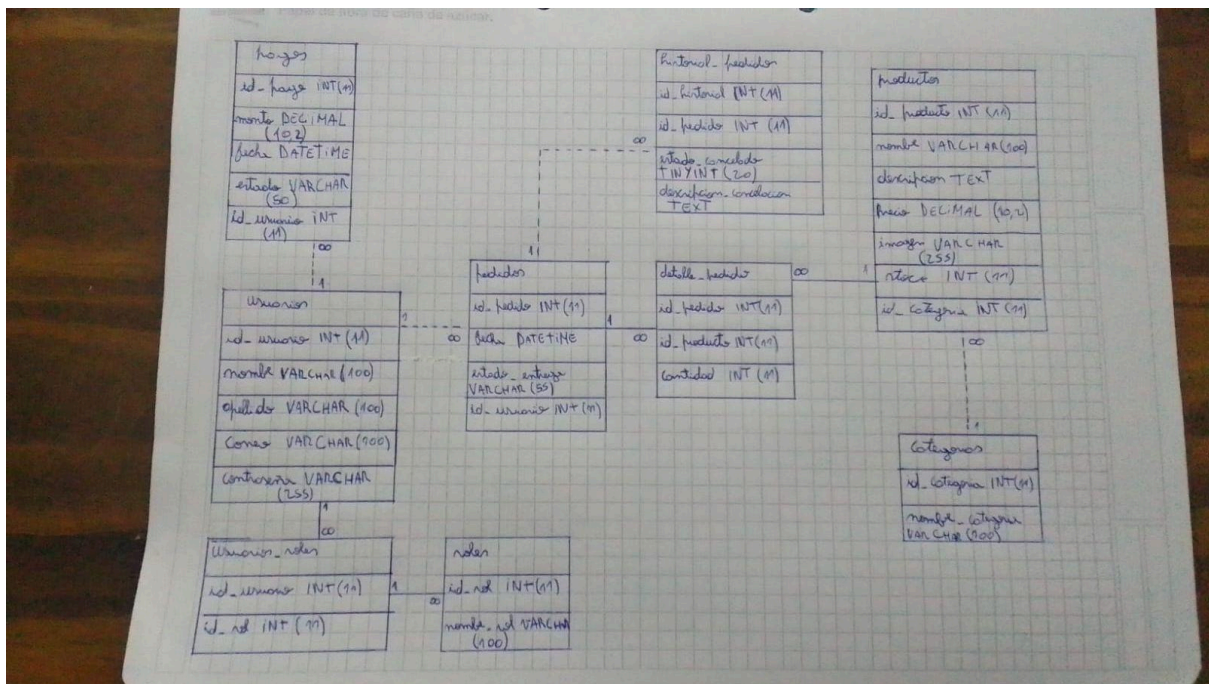 pagos
id_pago INT(11)
monto DECIMAL
(10,2)
fecha DATETIME
estado VARCHAR
(50)
id_usuario INT
(11)
∞
1
usuarios
id_usuario INT (11)
nombre VARCHAR (100)
apellido VARCHAR (100)
correo VARCHAR (100)
contraseña VARCHAR
(255)
1
∞
usuarios_roles
id_usuario INT (11)
id_rol INT (11)
1
∞
roles
id_rol INT (11)
nombre_rol VARCHAR
(100)
1
∞
pedidos
id_pedido INT (11)
fecha DATETIME
estado_entrega
VARCHAR (55)
id_usuario INT (11)
1
∞
historial_pedidos
id_historial INT (11)
id_pedido INT (11)
estado_cancelado
TINYINT (20)
descripcion_cancelacion
TEXT
1
∞
detalle_pedido
id_pedido INT (11)
id_producto INT (11)
cantidad INT (11)
∞
1
productos
id_producto INT (11)
nombre VARCHAR (100)
descripcion TEXT
precio DECIMAL (10,2)
imagen VARCHAR
(255)
stock INT (11)
id_categoria INT (11)
∞
1
categorias
id_categoria INT (11)
nombre_categoria
VARCHAR (100)